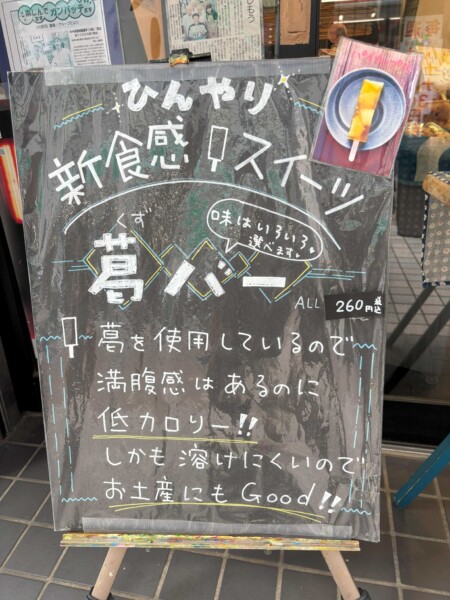 ひんやり
新食感スイーツ
くず
葛バー
味はいろいろ
選べます
ALL 260円税込
葛を使用しているので
満腹感はあるのに
低カロリー!!
しかも溶けにくいので
お土産にもGood!!